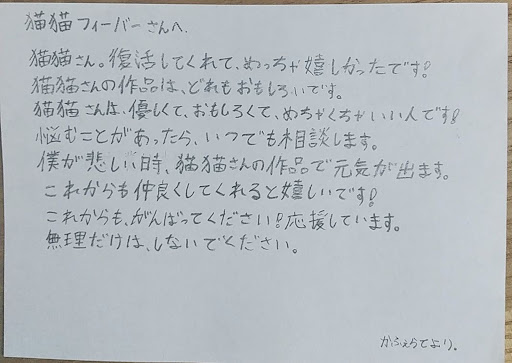 猫猫フィーバーさんへ.
猫猫さん。復活してくれて、めっちゃ嬉しかったです!
猫猫さんの作品は、どれもおもしろいです。
猫猫さんは、優しくて、おもしろくて、めちゃくちゃいい人です!
悩むことがあったら、いつでも相談します。
僕が悲しい時、猫猫さんの作品で元気が出ます。
これからも仲良くしてくれると嬉しいです!
これからも、がんばってください!応援しています。
無理だけは、しないでください。
かふぇらてより。